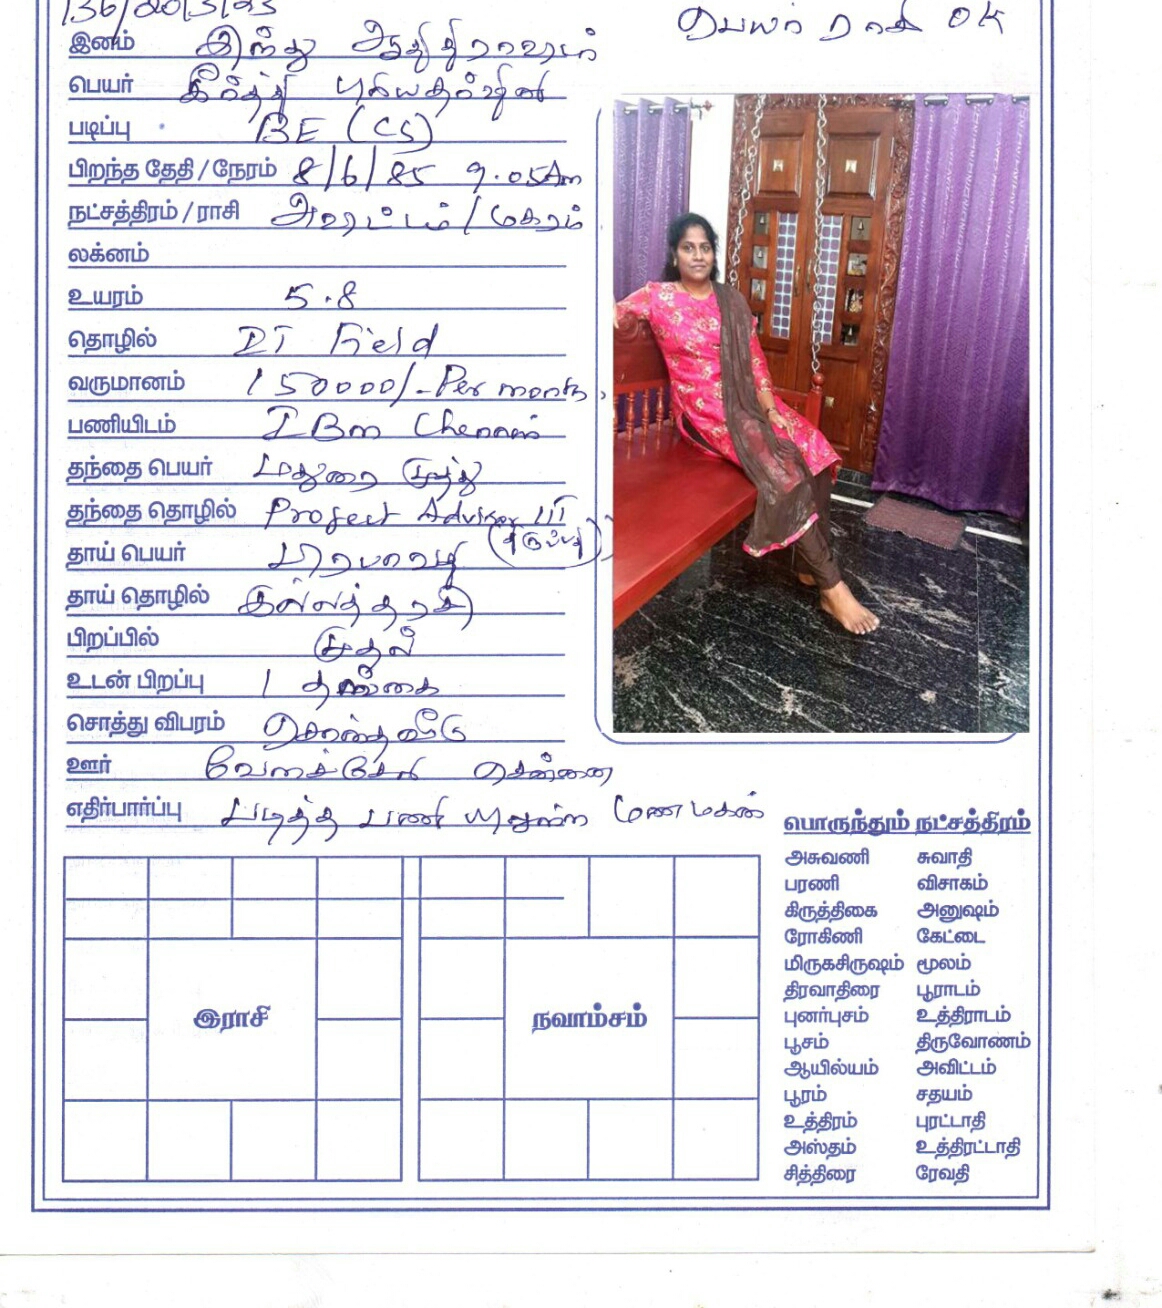 136/20/3/23
பெயர் ராசி OK
இனம் இந்து ஆதிதிராவிடர்
பெயர் கீர்த்தி
படிப்பு BE (CS)
பிறந்த தேதி / நேரம் 8/6/85 9.05Am
நட்சத்திரம் / ராசி அவிட்டம் / மகரம்
லக்னம்
உயரம் 5.8
தொழில் IT Field
வருமானம் 150000/- Per month
பணியிடம் IBM Chennai
தந்தை பெயர் மதுரை முத்து
தந்தை தொழில் Project Adviser IIT
தாய் பெயர்
தாய் தொழில் இல்லத்தரசி
பிறப்பில் முதல்
உடன் பிறப்பு 1 தங்கை
சொத்து விபரம் சொந்தவீடு
ஊர் வேளச்சேரி சென்னை
எதிர்பார்ப்பு படித்த பணி யிலுள்ள மணமகன்
பொருந்தும் நட்சத்திரம்
அசுவணி சுவாதி
பரணி விசாகம்
கிருத்திகை அனுஷம்
ரோகிணி கேட்டை
மிருகசிருஷம் மூலம்
திரவாதிரை பூராடம்
புனர்புசம் உத்திராடம்
பூசம் திருவோணம்
ஆயில்யம் அவிட்டம்
பூரம் சதயம்
உத்திரம் புரட்டாதி
அஸ்தம் உத்திரட்டாதி
சித்திரை ரேவதி
இராசி
நவாம்சம்